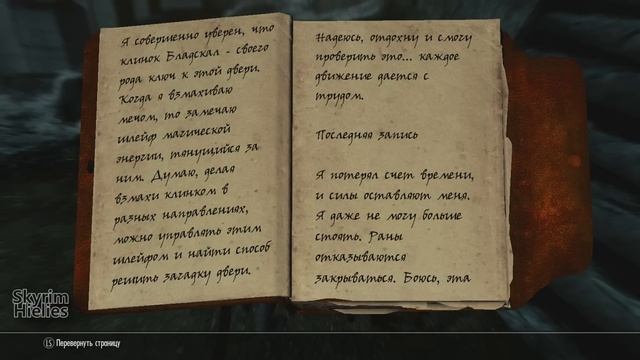 Я совершенно уверен, что
клинок Бладскал - своего
рода ключ к этой двери.
Когда я взмахиваю
мечом, то замечаю
шлейф магической
энергии, тянущийся за
ним. Думаю, делая
взмахи клинком в
разных направлениях,
можно управлять этим
шлейфом и найти способ
решить загадку двери.
Надеюсь, отдохну и смогу
проверить это... каждое
движение дается с
трудом.
Последняя запись
Я потерял счет времени,
и силы оставляют меня.
Я даже не могу больше
стоять. Раны
отказываются
закрываться. Боюсь, эта
Skyrim
Hielies
LS Перевернуть страницу